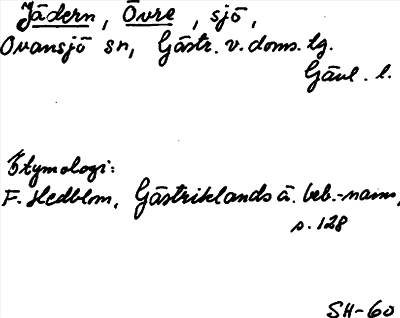 Jädern, Övre, sjö,
Ovansjö sn, Gästr. v. doms. tg.
Gävl. l.
Etymologi:
F. Hedblom, Gästriklands ä. beb.-namn,
s. 128
SH-60